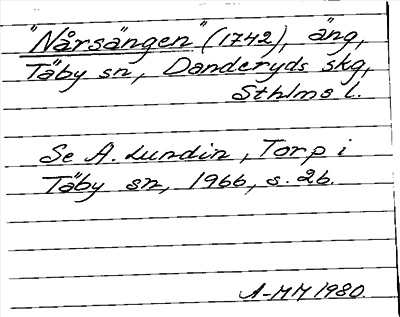 "Nårsängen" (1742), äng,
Täby sn, Danderyds skg,
Sthlms l.
Se A. Lundin, Torp i
Täby sn, 1966, s. 26.
A-MM 1980.